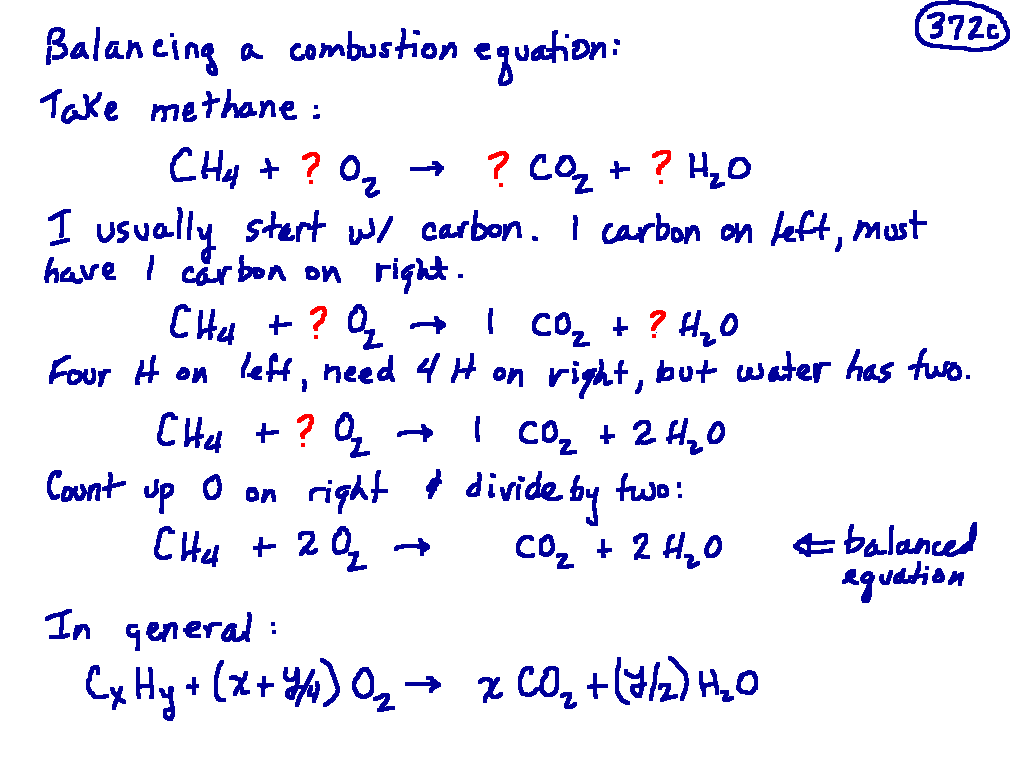 372c
Balancing a combustion equation:
Take methane:
CH₄ + ? O₂ → ? CO₂ + ? H₂O
I usually start w/ carbon. 1 carbon on left, must
have 1 carbon on right.
CH₄ + ? O₂ → 1 CO₂ + ? H₂O
Four H on left, need 4 H on right, but water has two.
CH₄ + ? O₂ → 1 CO₂ + 2 H₂O
Count up O on right & divide by two:
CH₄ + 2 O₂ → CO₂ + 2 H₂O ⇐ balanced
equation
In general:
CₓHᵧ + (x + y/4) O₂ → x CO₂ + (y/2) H₂O